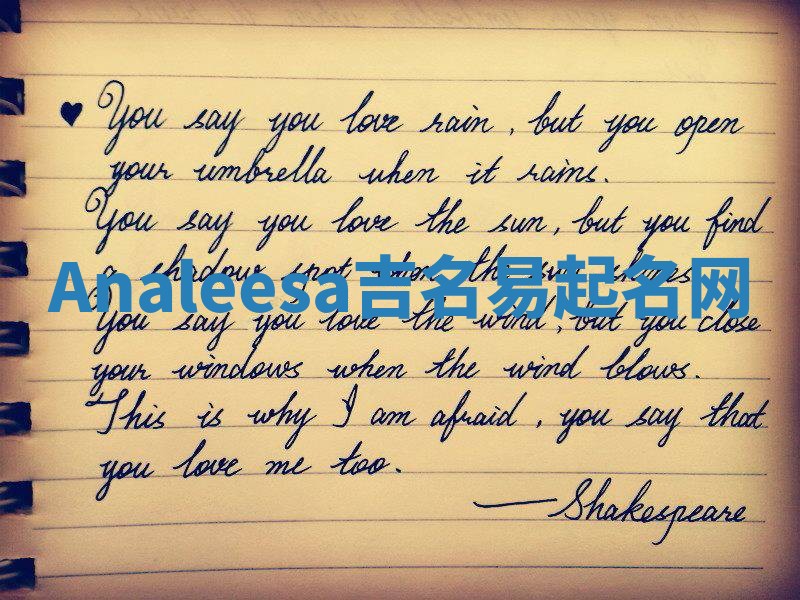 ♥ You say you love rain, but you open
your umbrella when it rains.
You say you love the sun, but you find
a shadow spot when the sun shines
Analeesa吉名易起名网
You say you love the wind, but you close
your windows when the wind blows.
This is why I am afraid, you say that
you love me too.
—Shakespeare